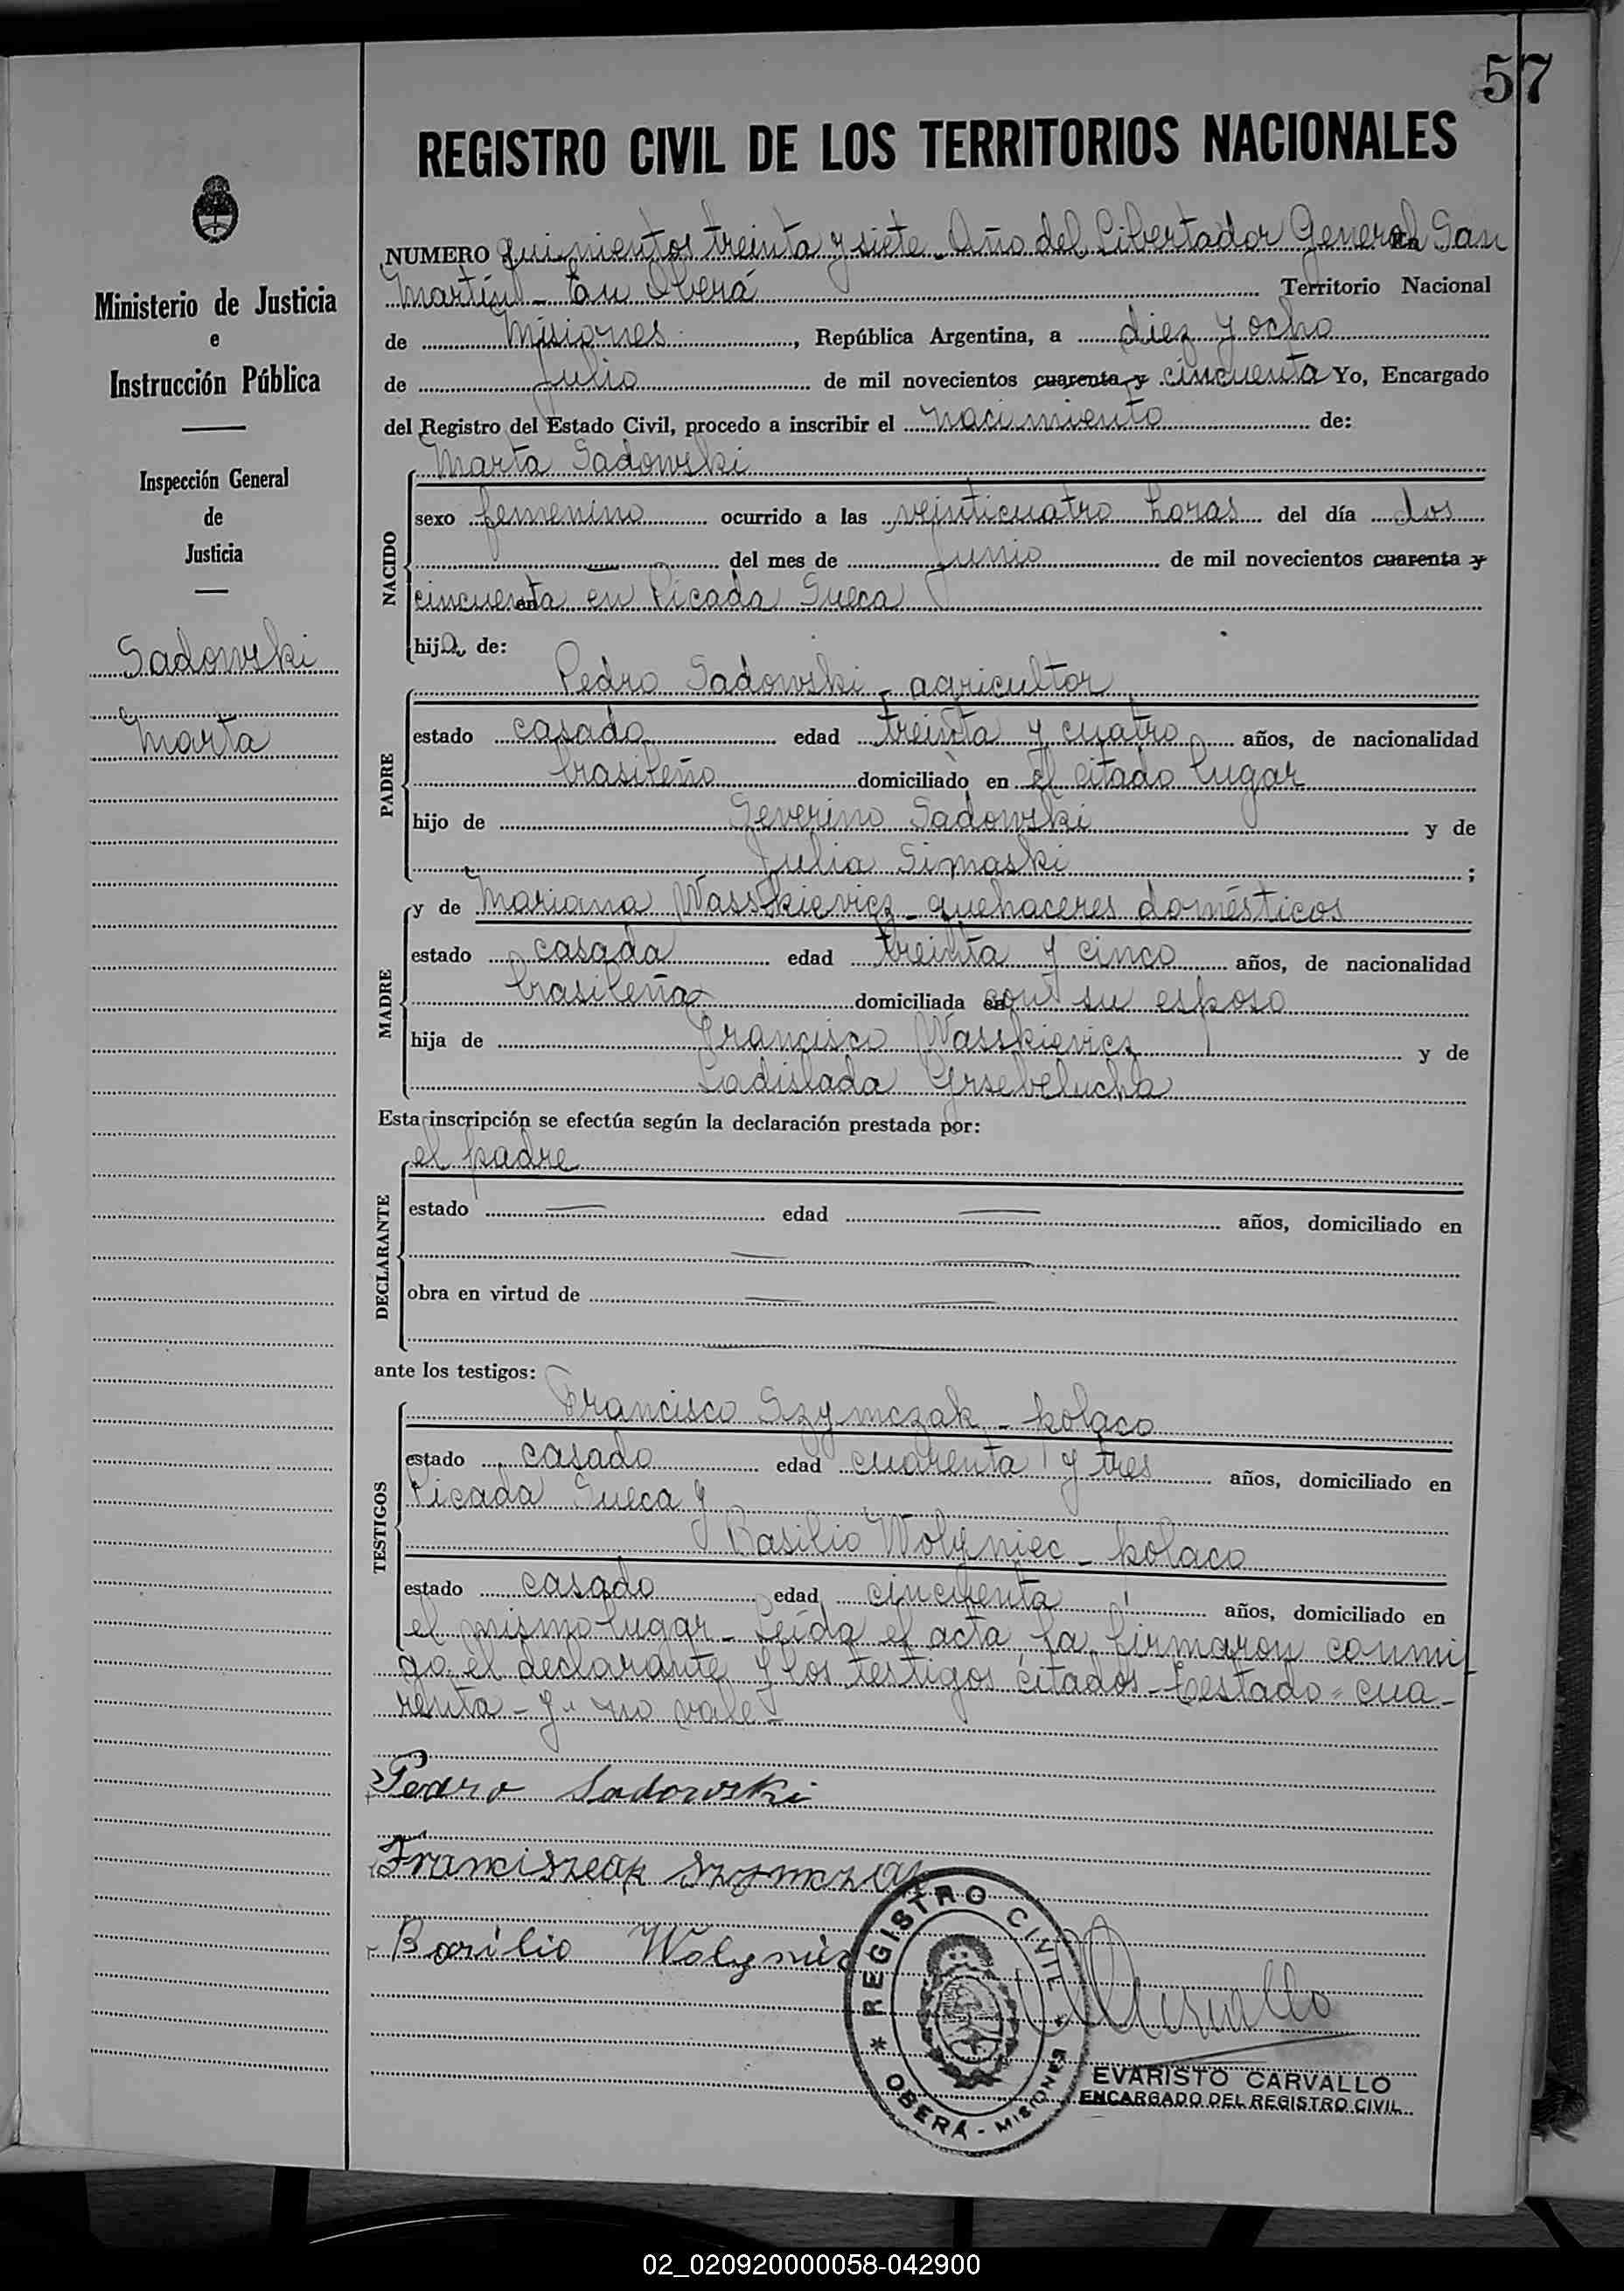 57
REGISTRO CIVIL DE LOS TERRITORIOS NACIONALES
Ministerio de Justicia
e
Instrucción Pública
Inspección General
de
Justicia
Sadowski
Marta
NUMERO quinientos treinta y siete - Año del Libertador General San
Martín - En Oberá Territorio Nacional
de Misiones , República Argentina, a diez y ocho
de Julio de mil novecientos cuarenta y cincuenta Yo, Encargado
del Registro del Estado Civil, procedo a inscribir el nacimiento de:
Marta Sadowski
NACIDO
sexo femenino ocurrido a las veinticuatro horas del día dos
del mes de Junio de mil novecientos cuarenta y
cincuenta en Picada Sueca
hija de:
Pedro Sadowski - agricultor
PADRE
estado casado edad treinta y cuatro años, de nacionalidad
brasileño domiciliado en el citado lugar
hijo de Severino Sadowski y de
Julia Simaski ;
y de Mariana Wasskievicz - quehaceres domésticos
MADRE
estado casada edad treinta y cinco años, de nacionalidad
brasileña domiciliada en con su esposo
hija de Francisco Wasskievicz y de
Ladislada Grsebelucha
Esta inscripción se efectúa según la declaración prestada por:
el padre
DECLARANTE
estado — edad — años, domiciliado en
obra en virtud de —
ante los testigos:
Francisco Szymczak - polaco
TESTIGOS
estado casado edad cuarenta y tres años, domiciliado en
Picada Sueca y
Basilio Wolyniec - polaco
estado casado edad cincuenta años, domiciliado en
el mismo lugar - Leída el acta la firmaron conmi-
go, el declarante y los testigos citados - Testado = cua-
renta - y " no vale -
Pedro Sadowski
Franciszeak Szymczak
Basilio Wolyniec
REGISTRO CIVIL
* OBERÁ - MISIONES *
EVARISTO CARVALLO
ENCARGADO DEL REGISTRO CIVIL
02_020920000058-042900